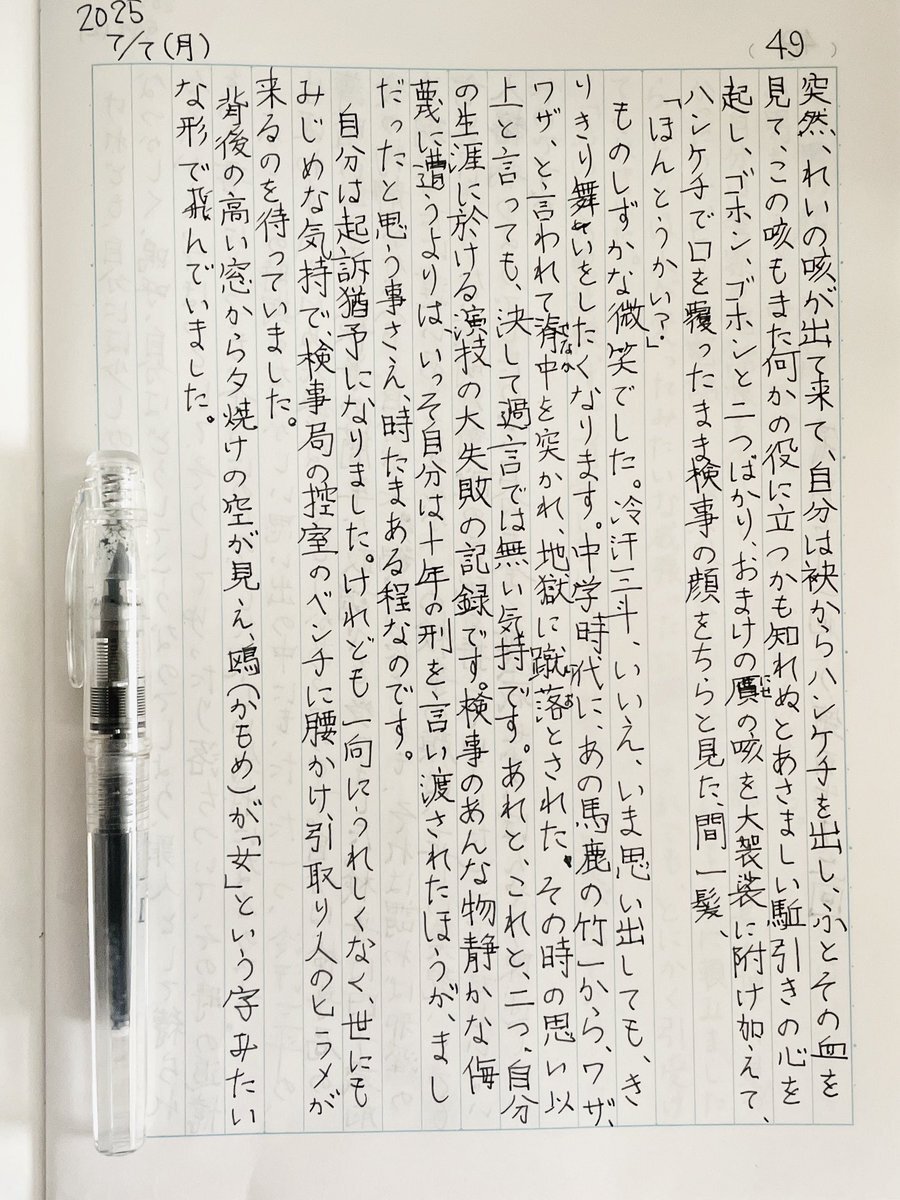 2025
7/7(月)
(49)
突然、れいの咳が出て来て、自分は袂からハンケチを出し、ふとその血を
見て、この咳もまた何かの役に立つかも知れぬとあさましい駈引きの心を
起し、ゴホン、ゴホンと二つばかり、おまけの贋の咳を大袈裟に附け加えて、
にせ
ハンケチで口を覆ったまま検事の顔をちらと見た、間一髪、
「ほんとうかい?」
ものしずかな微笑でした。冷汗三斗、いいえ、いま思い出しても、き
りきり舞いをしたくなります。中学時代に、あの馬鹿の竹一から、ワザ、
ワザ、と言われて脊中を突かれ、地獄に蹴落とされた。その時の思い以
せなか
けお
上と言っても、決して過言では無い気持です。あれと、これと、二つ、自分
の生涯に於ける演技の大失敗の記録です。検事のあんな物静かな侮
蔑に遭うよりは、いっそ自分は十年の刑を言い渡されたほうが、まし
だったと思う事さえ、時たまある程なのです。
自分は起訴猶予になりました。けれども一向にうれしくなく、世にも
みじめな気持で、検事局の控室のベンチに腰かけ、引取り人のヒラメが
来るのを待っていました。
背後の高い窓から夕焼けの空が見え、鴎(かもめ)が「女」という字みたい
な形で飛んでいました。